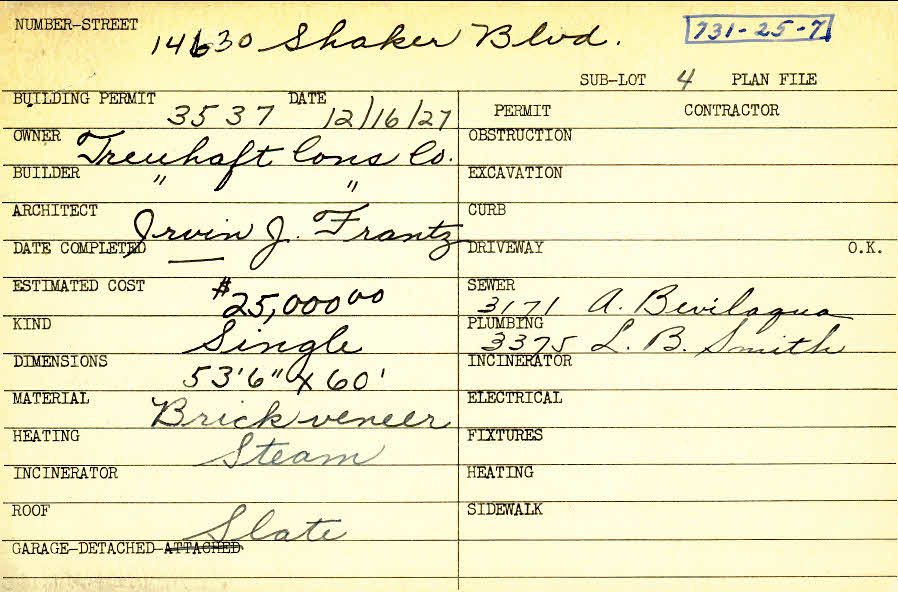 NUMBER-STREET 14630 Shaker Blvd. 731-25-7
SUB-LOT 4 PLAN FILE
BUILDING PERMIT 3537 DATE 12/16/27
OWNER Treuhaft Cons Co.
BUILDER " "
ARCHITECT Irvin J. Frantz
DATE COMPLETED —
ESTIMATED COST $25,000 00
KIND Single
DIMENSIONS 53'6" x 60'
MATERIAL Brick veneer
HEATING Steam
INCINERATOR
ROOF Slate
GARAGE-DETACHED-ATTACHED
PERMIT CONTRACTOR
OBSTRUCTION
EXCAVATION
CURB
DRIVEWAY O.K.
SEWER 3171 A. Bevilaqua
PLUMBING 3375 L. B. Smith
INCINERATOR
ELECTRICAL
FIXTURES
HEATING
SIDEWALK